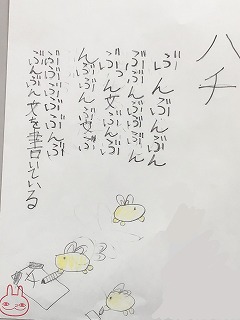 ハチ
ぶんぶんぶん
ぶぶぶんぶんぶ
ぶん文んぶんぶ
んぶぶん文ぶ
ぶぶぶぶぶんぶ
ぶんぶん文を書いている